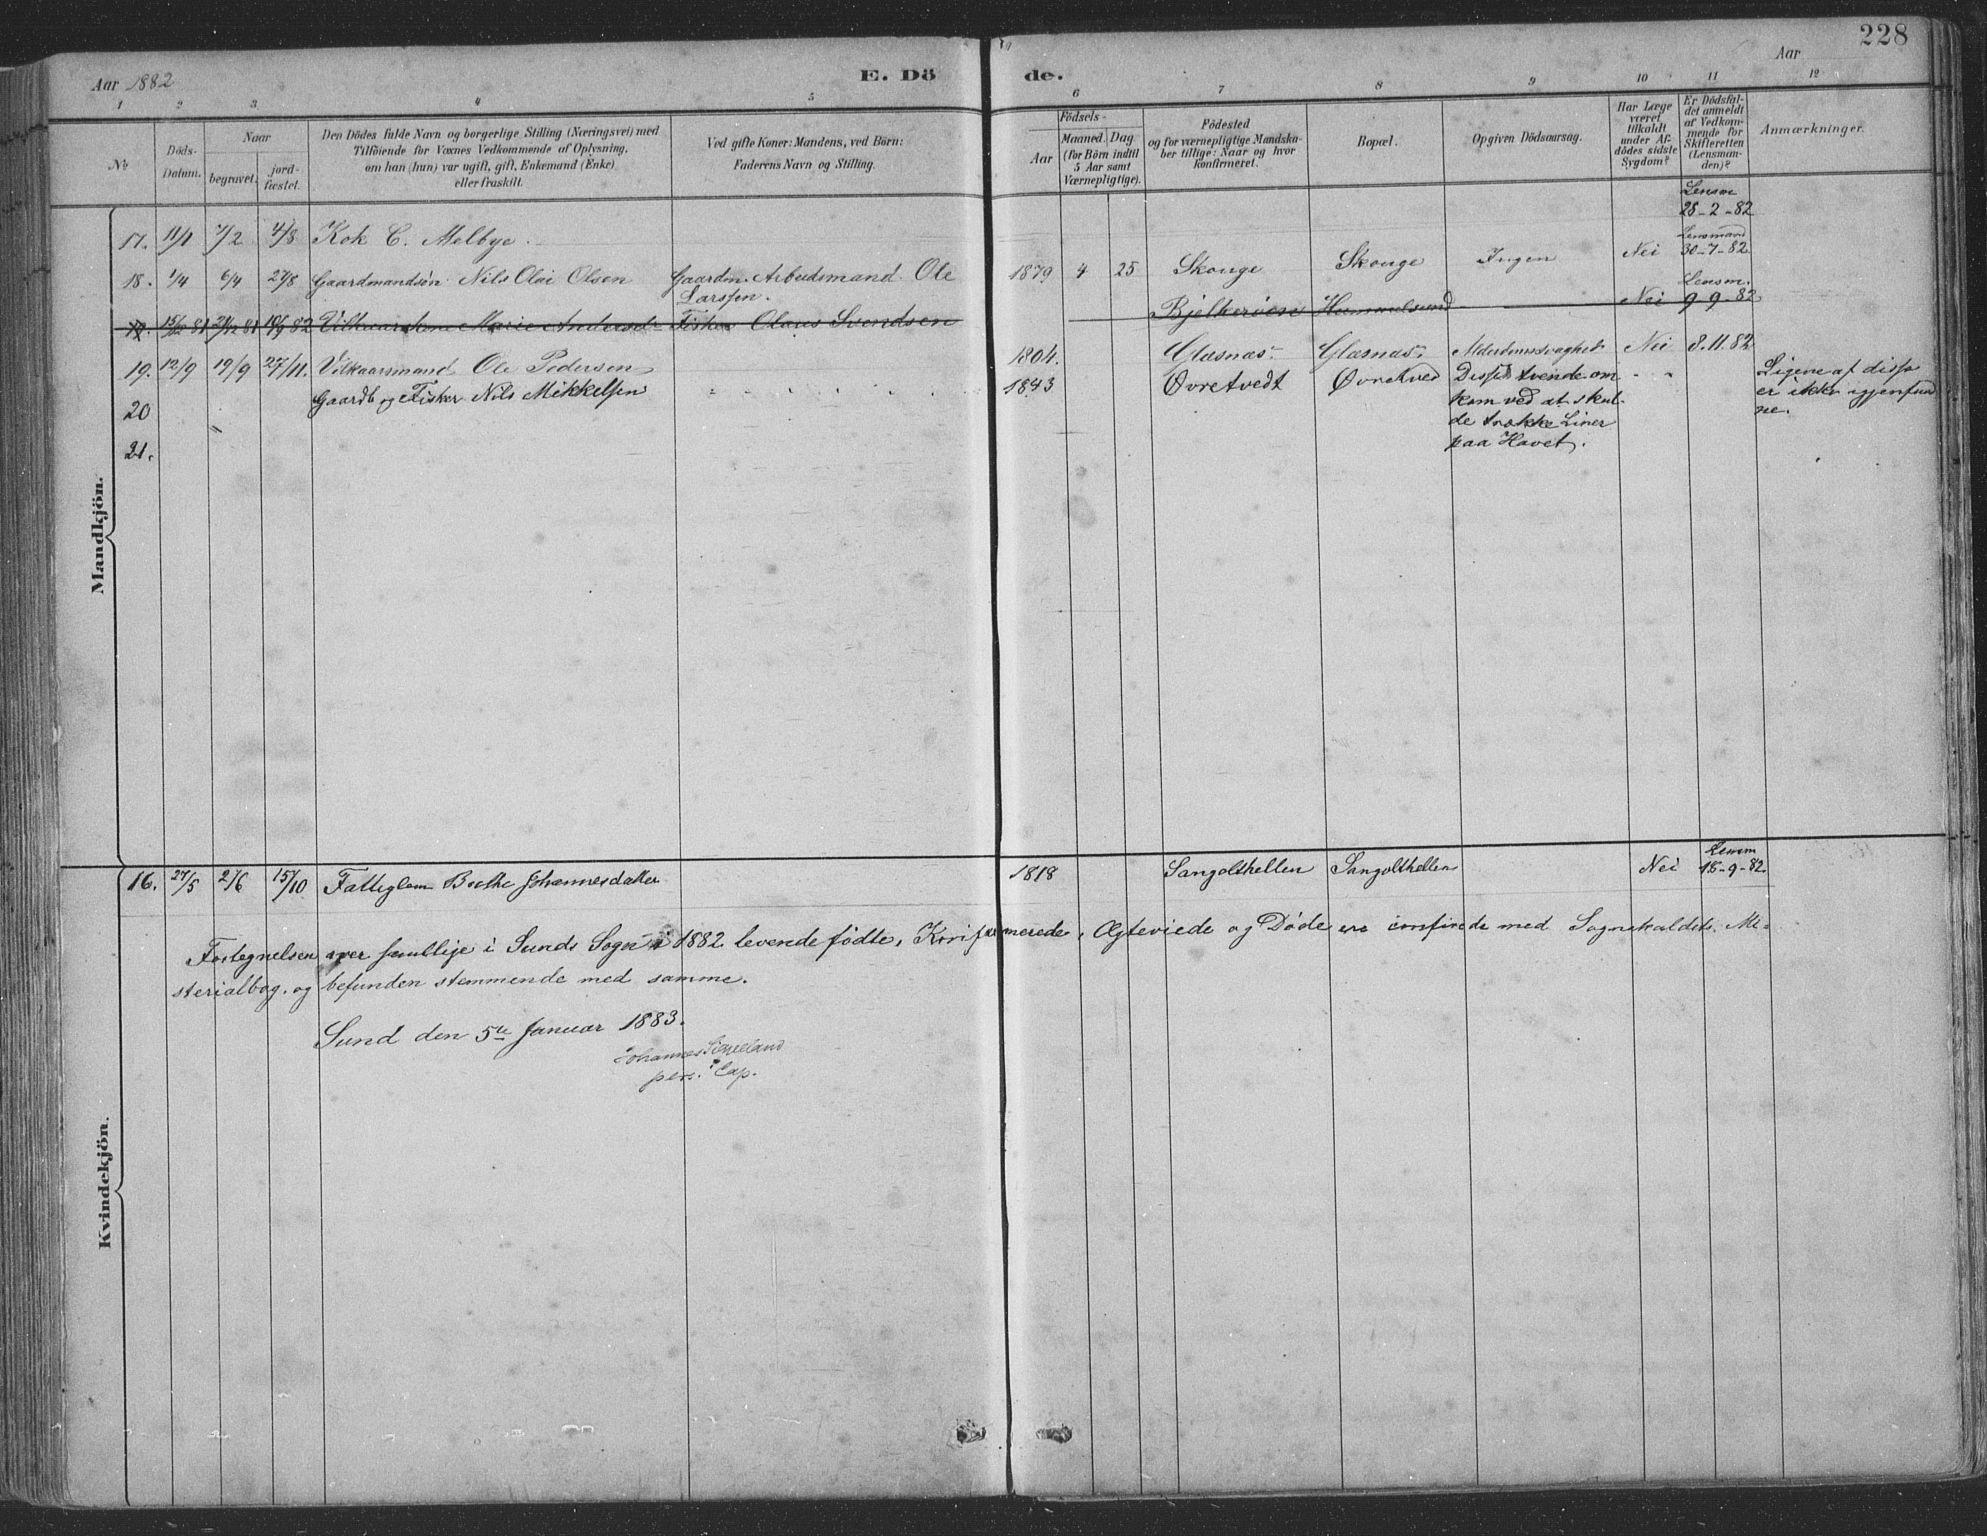 228
Aar 1882 E. Dö de. Aar
1 2 3 4 5 6 7 8 9 10 11 12
No
Döds-Datum.
Naar
begravet.
jord-fæstet.
Den Dödes fulde Navn og borgerlige Stilling (Næringsvei) med
Tilföiende for Voxnes Vedkommende af Oplysning,
om han (hun) var ugift, gift, Enkemand (Enke)
eller fraskilt.
Ved gifte Koner: Mandens, ved Börn:
Faderens Navn og Stilling.
Födsels-
Aar
Maaned. Dag.
(for Börn indtil
5 Aar samt
Værnepligtige).
Födested
og for værnepligtige Mandska-
ber tillige: Naar og hvor
konfirmeret.
Bopæl.
Opgiven Dödsaarsag.
Har Læge
været
tilkaldt
under Af-
dödes sidste
Sygdom?
Er Dödsfal-
det anmeldt
af Vedkom-
mende for
Skifteretten
(Lensman-
den)?
Anmærkninger.
Mandkjön.
17. 11/1 7/2 4/8 Kok C. Melbye. Lensm 28-2-82
18. 1/4 6/4 27/8 Gaardmandsön Nils Olai Olsen Gaardm. Arbeidsmand Ole Larssen. 1879 4 25 Skouge Skouge Ingen Nei Lensmand 30-7-82
Marie Andersdr Fisker Olaus Svendsen Bjelkeröen Nei Lensm. 9-9-82
19. 12/9 19/9 27/11. Vilkaarsmand Ole Pedersen 1804. Glæsnæs Glæsnæs Alderdomssvaghed Nei 8.11.82
20 Gaardb og Fisker Nils Mikkelsen 1843 Øvretvedt Øvretved Disse tvende om
kom ved at skul-
de trække Liner
paa Havet.
Ligene af disse
er ikke igjenfund
ne.
21.
Kvindekjön.
16. 27/5 2/6 15/10 Fattiglem Berthe Johannesdatter 1818 Sangolthellen Sangolthellen Nei Lensm 15-9-82
Fortegnelsen over samtlige i Sunds Sogn i 1882 levende fødte, Konfirmerede, Ægteviede og Døde ere confirede med Sognekaldets Mi-
sterialbog, og befunden stemmende med samme.
Sund den 5te Januar 1883.
Johannes
pers. Cap.